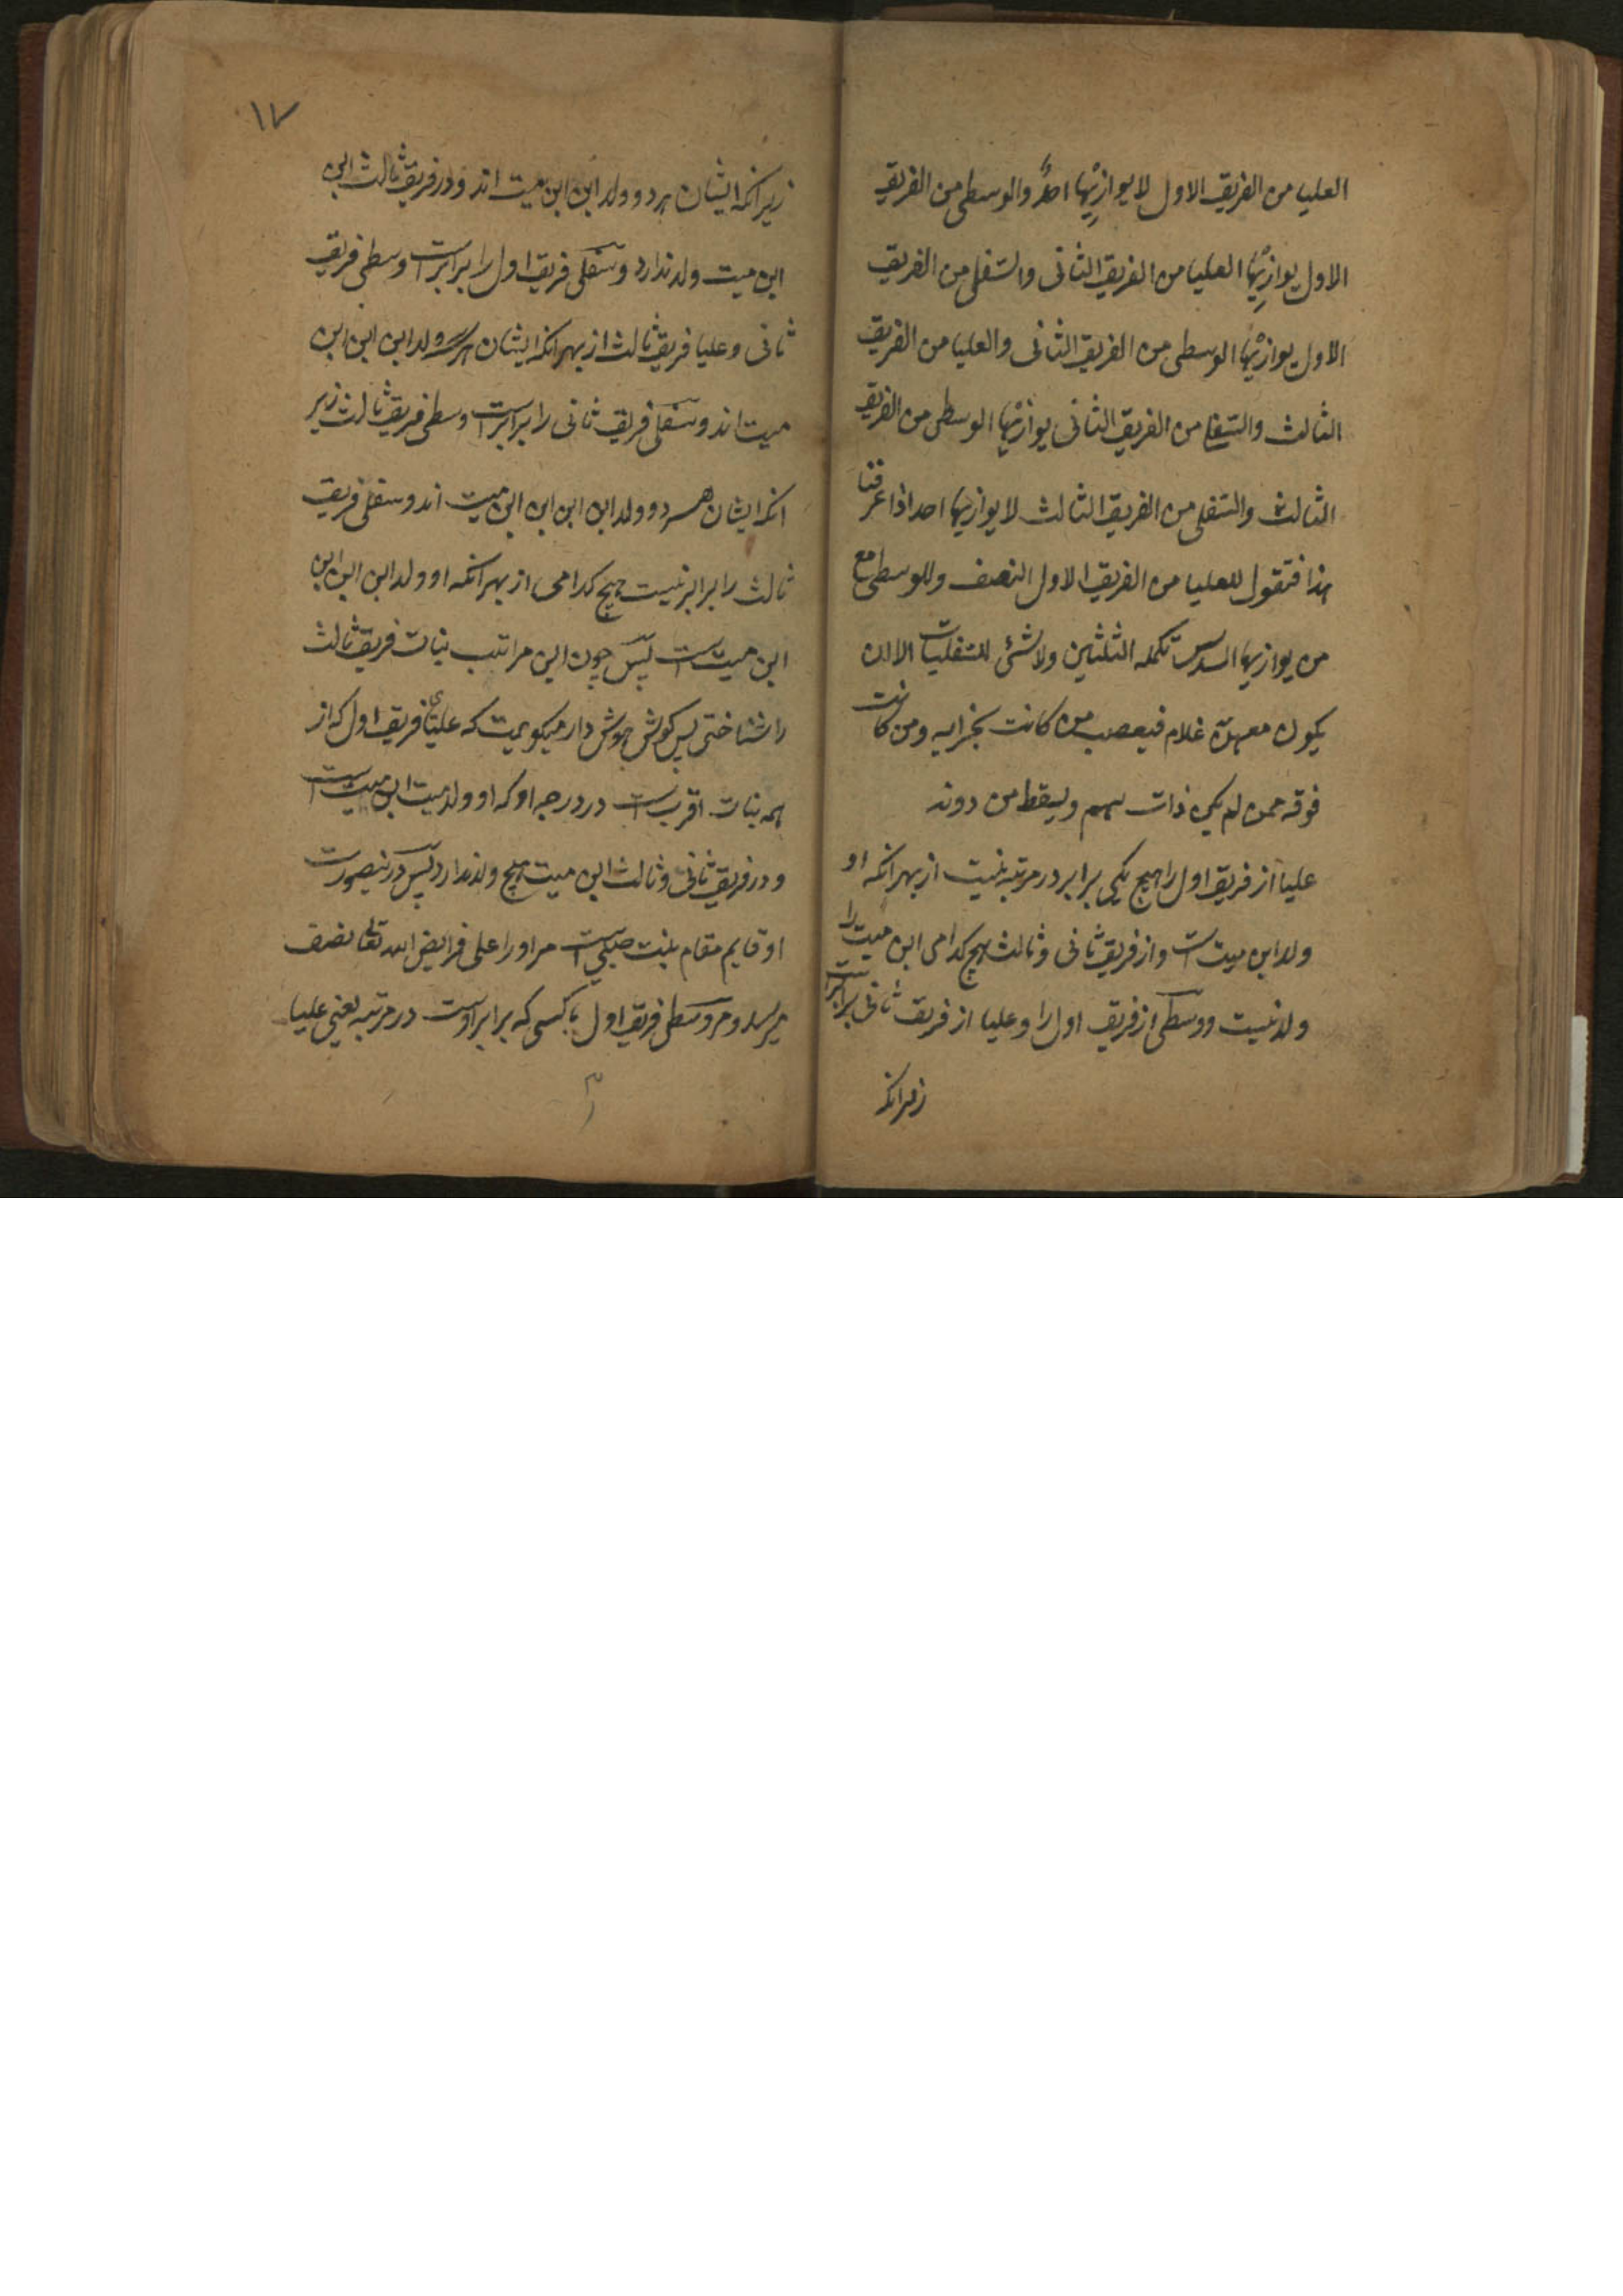 العلیا من الفریق الاول لا یوازیها احدٌ والوسطی من الفریق
الاول یوازیها العلیا من الفریق الثانی والسفلی من الفریق
الاول یوازیها الوسطی من الفریق الثانی والعلیا من الفریق
الثالث والسفلی من الفریق الثانی یوازیها الوسطی من الفریق
الثالث والسفلی من الفریق الثالث لا یوازیها احد اذا عرفنا
هذا فنقول للعلیا من الفریق الاول النصف وللوسطی مع
من یوازیها السدس تکمله الثلثین ولا شئی للسفلیات الا ان
یکون معهن غلام فیعصب من کانت بحذایه ومن کانت
فوقه ممن لم یکن ذات سهم ویسقط من دونه
علیا از فریق اول را هیچ یکی برابر در مرتبه نیست از بهر انکه او
ولد ابن میت است و از فریق ثانی و ثالث هیچ کدامی ابن میت را
ولد نیست و وسطی از فریق اول را و علیا از فریق ثانی برابر است
زیرانکه
۱۷
زیرانکه ایشان هر دو ولد ابن ابن میت اند و در فریق ثالث ابن
ابن میت ولد ندارد و سفلی فریق اول را برابر است وسطی فریق
ثانی و علیا فریق ثالث از بهر انکه ایشان هر سه ولد ابن ابن ابن
میت اند و سفلی فریق ثانی را برابر است وسطی فریق ثالث زیر
انکه ایشان هر دو ولد ابن ابن ابن ابن میت اند و سفلی فریق
ثالث را برابر نیست هیچ کدامی از بهر انکه او ولد ابن ابن ابن
ابن میت است پس چون این مراتب بنات فریق ثالث
را شناختی پس کوش هوش دار میکویمت که علیای فریق اول که از
همه بنات اقرب است در درجه او که او ولد میت ابن میت است
و در فریق ثانی و ثالث ابن میت هیچ ولد ندارد پس درینصورت
او قایم مقام بنت صلبی است مر او را علی فرایض الله تعالی نصف
میرسد و مر وسطی فریق اول با کسی که برابر اوست در مرتبه یعنی علیا